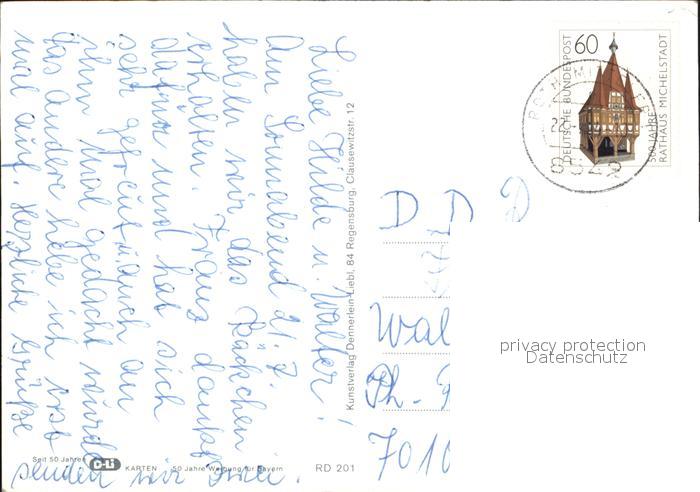 Liebe Hilde u. Walter!
Am Sonnabend 21.7.
haben wir das Päckchen
erhalten. Franz dankt
dafür und hat sich
sehr gefreut, auch an
ihn mal gedacht wurde
das andere hebe ich erst
mal auf. Herzliche Grüße
senden wir zwei.
Kunstverlag Demnerlein-Liebl, 84 Regensburg, Clausewitzstr. 12
Seit 50 Jahren
KARTEN
50 Jahre Werbung für Bayern
RD 201
DEUTSCHE BUNDESPOST
60
500 JAHRE
RATHAUS MICHELSTADT
8542
D D D
Wal
Ph.
7010
privacy protection
Datenschutz